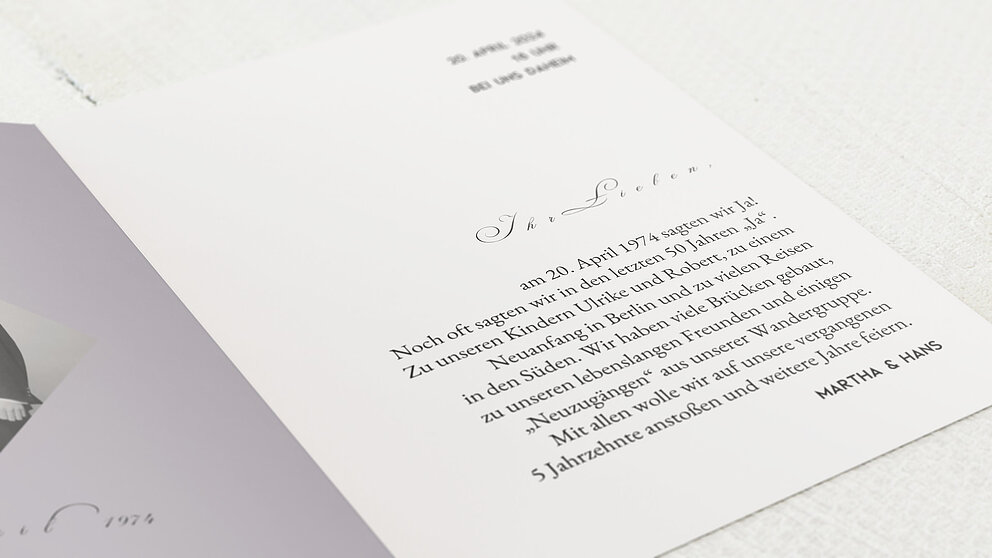 20. APRIL 2024
18 UHR
BEI UNS DAHEIM
Ihr Lieben,
am 20. April 1974 sagten wir Ja!
Noch oft sagten wir in den letzten 50 Jahren „Ja“ .
Zu unseren Kindern Ulrike und Robert, zu einem
Neuanfang in Berlin und zu vielen Reisen
in den Süden. Wir haben viele Brücken gebaut,
zu unseren lebenslangen Freunden und einigen
„Neuzugängen“ aus unserer Wandergruppe.
Mit allen wolle wir auf unsere vergangenen
5 Jahrzehnte anstoßen und weitere Jahre feiern.
MARTHA & HANS
ril 1974